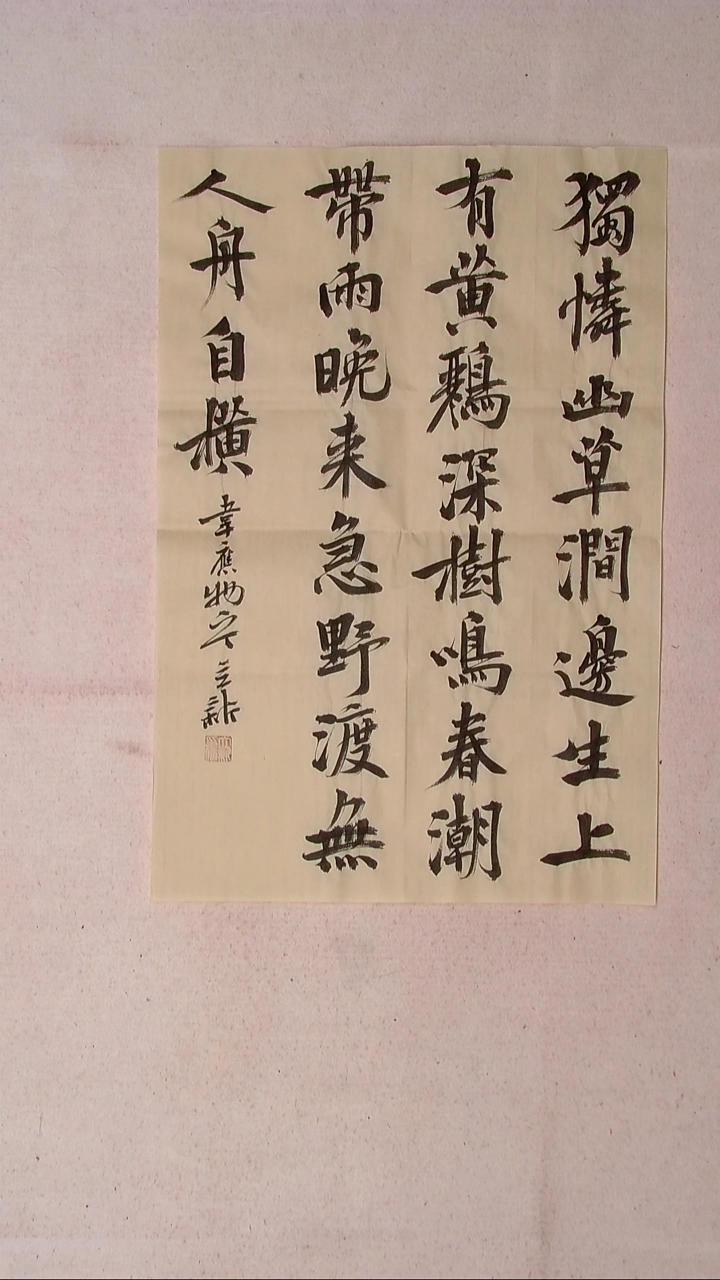 獨憐幽草澗邊生上
有黃鸝深樹鳴春潮
帶雨晚来急野渡無
人舟自横
韋應物